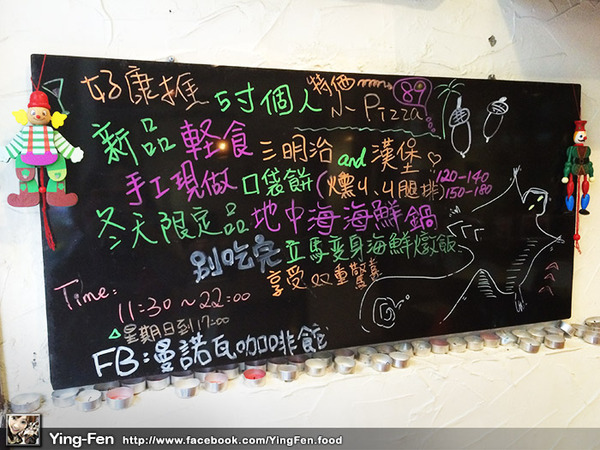 好康推 5寸個人 特価
小 Pizza 89
新品輕食 三明治 and 漢堡
手工現做 口袋餅 (燻4.4腿排) 120-140 150-180
冬天限定品 地中海海鮮鍋
別吃完 立馬変身海鮮燉飯
享受双重驚喜
Time:
11:30~22:00
△星期日到17:00
FB:曼諾瓦咖啡館
Ying-Fen http://www.facebook.com/YingFen.food